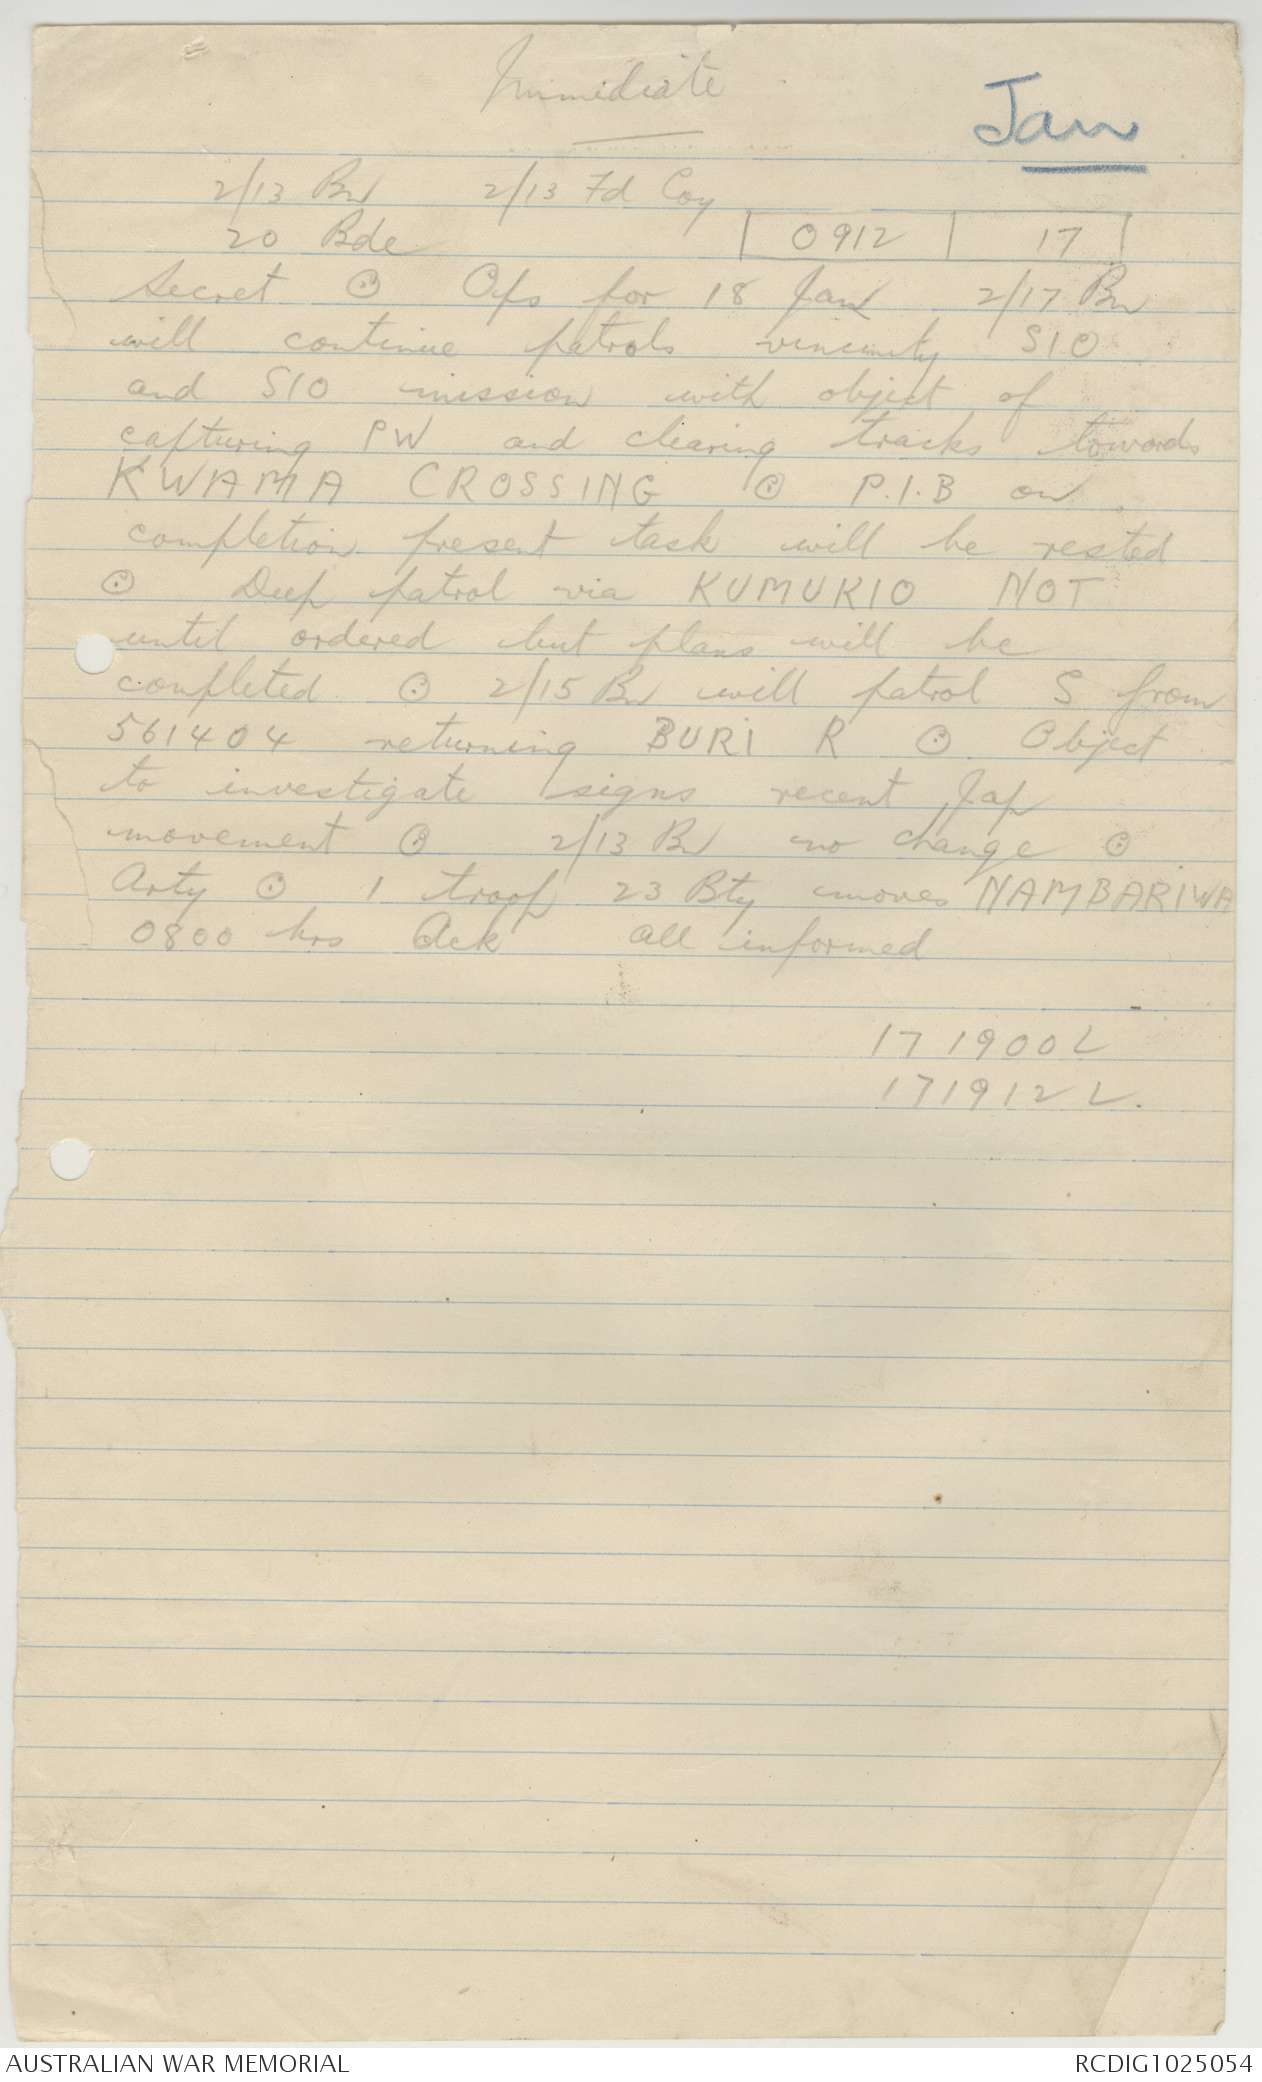 Immediate
Jan
2/13 Bn 2/13 Fd Coy
20 Bde 0912 17
Secret ⊙ Ops for 18 Jan 2/17 Bn
will continue patrols vincinity SIO
and SIO mission with object of
capturing PW and clearing tracks towards
KWAMA CROSSING ⊙ P.I.B on
completion present task will be rested
⊙ Deep patrol via KUMUKIO NOT
until ordered but plans will be
completed ⊙ 2/15 Bn will patrol S from
561404 returning BURI R ⊙ Object
to investigate signs recent Jap
movement ⊙ 2/13 Bn no change ⊙
Arty ⊙ 1 troop 23 Bty moves NAMBARIWA
0800 hrs Ack all informed
17 1900 L
17 1912 L.
AUSTRALIAN WAR MEMORIAL RCDIG1025054